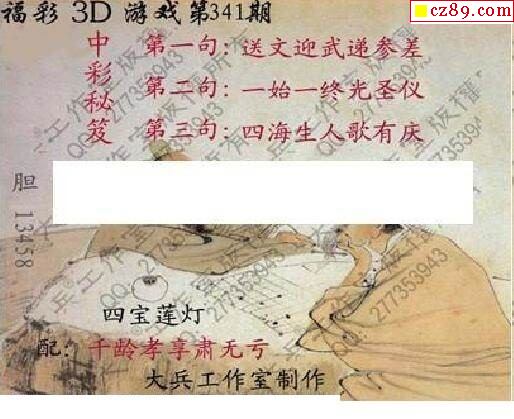 福彩 3D 游戏第341期
cz89.com
中彩秘笈
第一句：送文迎武递参差
第二句：一始一终光圣仪
第三句：四海生人歌有庆
胆 13458
四宝莲灯
配：千龄孝享肃无亏
大兵工作室制作
大兵工作室版权所有
QQ：277353943